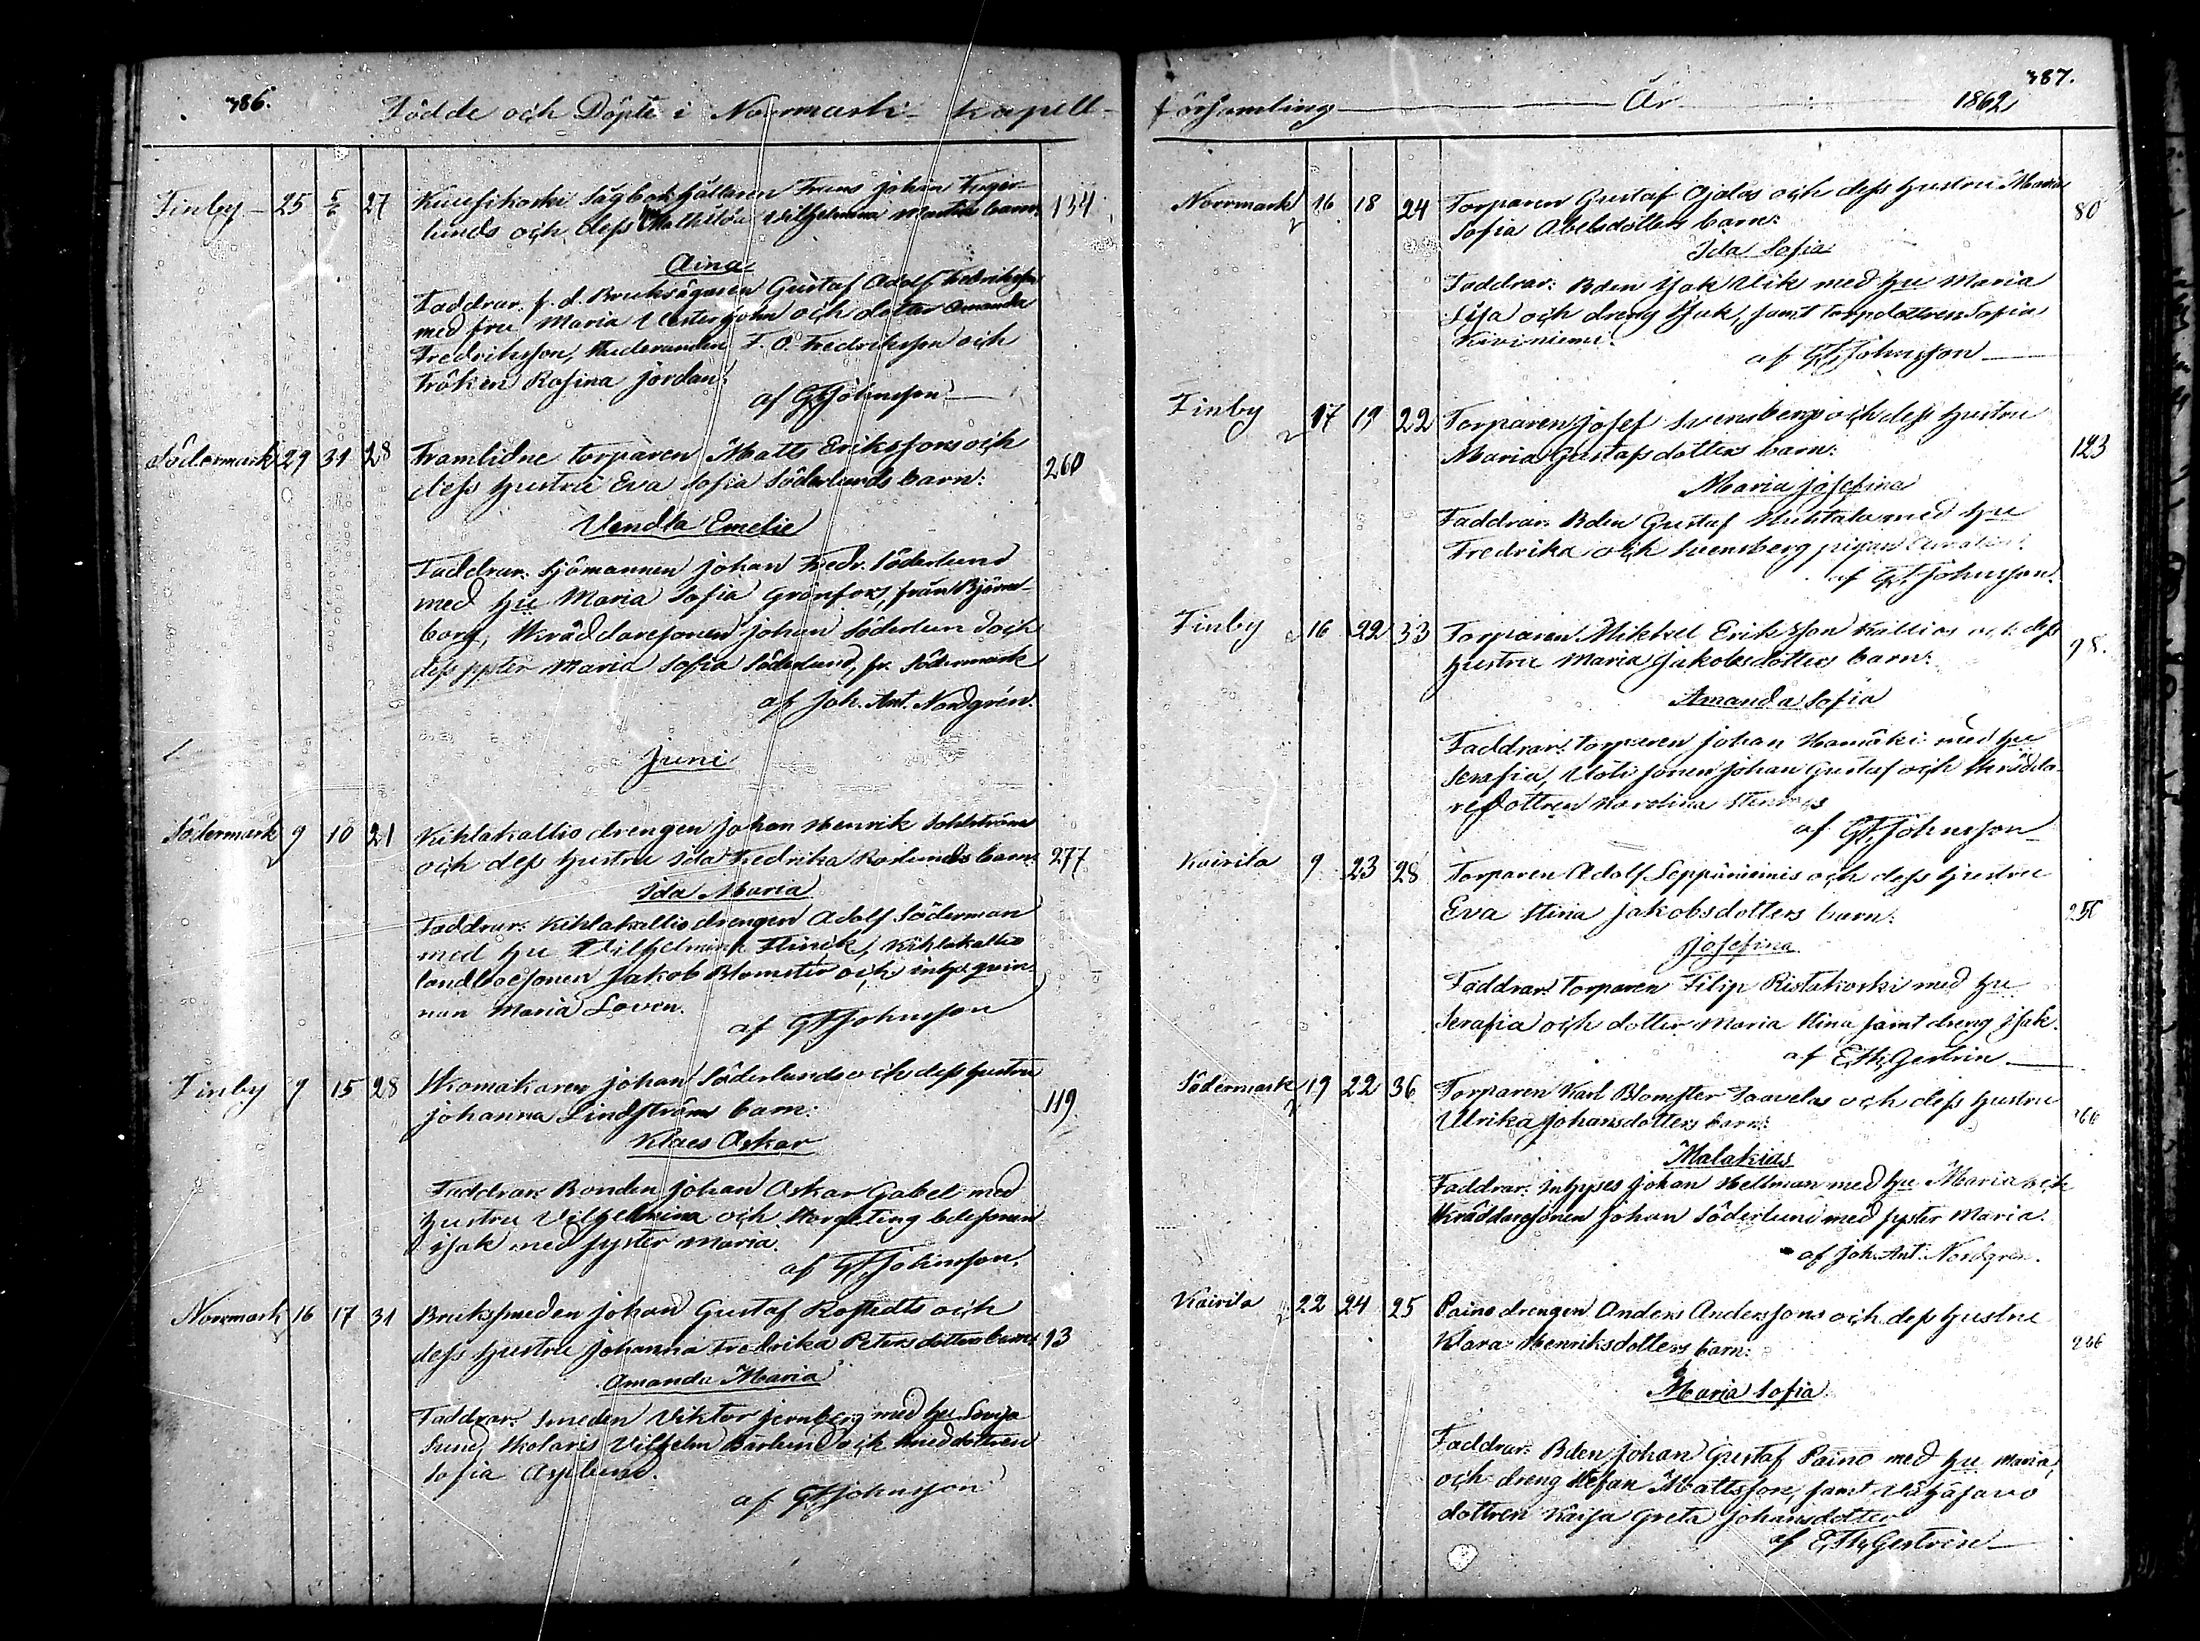 386.
Födde och Döpte i Norrmark kapell-
Finby 25 5/6 27 Kuusikoski Sågbokhållaren Frans Johan Fager-
lunds och dess Mathilda Vilhelmina Martin barn: 134
Aina
Faddrar: f. d. Bruksägaren Gustaf Adolf Fredriksson
med fru Maria Vestergohn och dotter Amanda
Fredriksson, Studeranden F. O. Fredriksson och
Fröken Rosina Jordan.
af G F Johnsson
Södermark 29 31 28 Framlidne torparen Matts Erikssons och
dess hustru Eva Sofia Söderlunds barn: 260
Vendla Emelie
Faddrar: Sjömannen Johan Fredr. Söderlund
med hu Maria Sofia Grönfors, från Björne-
borg, Skräddaresonen Johan Söderlund och
dess syster Maria Sofia Söderlund, fr. Södermark
af Joh. Ant. Nordgrén.
Juni
Södermark 9 10 21 Kihlakallio drengen Johan Henrik Sohlströms
och dess hustru Ida Fredrika Roslunds barn: 277
Ida Maria
Faddrar: Kihlakallio drengen Adolf Söderman
med hu Vilhelmina Flinck, Kihlakallio
landboesonen Jakob Blomster och inhs. qvin-
nan Maria Loven.
af G F Johnsson
Finby 9 15 28 Skomakaren Johan Söderlunds och dess hustru
Johanna Lindströms barn: 119
Klaes Oskar
Faddrar: Bonden Johan Oskar Gabel med
hustru Vilhelmina och Storgeting bdesonen
Isak med syster Maria.
af G F Johnsson.
Norrmark 16 17 31 Bruksmeden Johan Gustaf Rostedts och
dess hustru Johanna Fredrika Petersdotters barn: 13
Amanda Maria
Faddrar: Smeden Viktor Jernberg med hu Lovisa
Sund, Skolaris Vilhelm Bärlund och smeddottren
Sofia Asplund.
af G F Johnsson
387.
församling År 1862
Norrmark 16 18 24 Torparen Gustaf Ojalas och dess hustru Maria
Sofia Abelsdotters barn: 80
Ida Sofia
Faddrar: Bden Isak Ulik med hu Maria
Lisa och dreng Isak, samt torpdottren Sofia
Kiviniemi.
af G F Johnsson
Finby 17 19 22 Torparen Josef Svensbergs och dess hustru
Maria Gustafsdotters barn: 123
Maria Josefina
Faddrar: Bden Gustaf Huhtala med hu
Fredrika och Svensberg pigan
af G F Johnsson.
Finby 16 22 33 Torparen Mikkel Eriksson Kallios och dess
hustru Maria Jakobsdotters barn: 98.
Amanda Sofia
Faddrar: torparen Johan Hamäki med hu
Serafia, Uoti sonen Johan Gustaf och Skrädda-
redottren Karolina
af G F Johnsson
Kairila 9 23 28 Torparen Adolf Seppäniemis och dess hustru
Eva Stina Jakobsdotters barn: 256
Josefina
Faddrar: torparen Filip Ristakoski med hu
Serafia och dotter Maria Stina samt dreng Isak.
af E. Th. Gestrin
Södermark 19 22 36 Torparen Karl Blomster Taavelas och dess hustru
Ulrika Johansdotters barn:
Malakias
Faddrar: Inhyses Johan Hellman med hu Maria och
Skräddaresonen Johan Söderlund med syster Maria.
af Joh. Ant. Nordgrén.
Kairila 22 24 25 Paino drengen Anders Anderssons och dess hustru
Klara Henriksdotters barn: 266
Maria Sofia
Faddrar: Bden Johan Gustaf Paino med hu Maria,
och dreng Stefan Mattsson, samt Vähäjaro
dottren Kaisa Greta Johansdotter
af E. Th. Gestrin